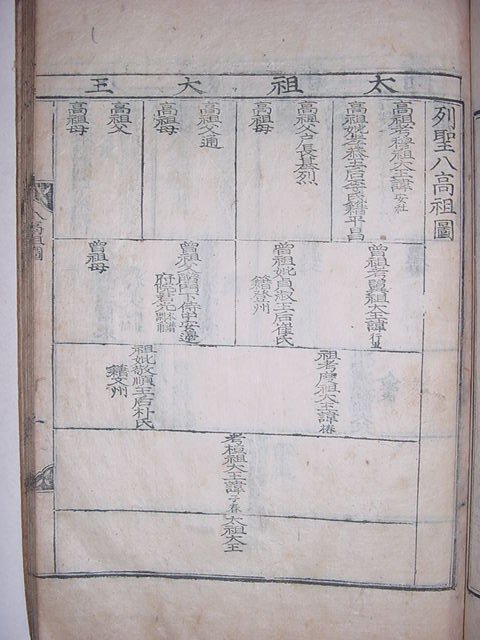 太祖大王
列聖八高祖圖
高祖考穆祖大王諱安社
高祖妣孝恭王后李氏籍平昌
高祖父戶長基烈
高祖母
高祖父通
高祖母
高祖父
高祖母
曾祖考翼祖大王諱行里
曾祖妣貞淑王后崔氏
籍登州
曾祖父
曾祖母
祖考度祖大王諱椿
祖妣敬順王后朴氏
籍文州
考桓祖大王諱子春
太祖大王
八高祖圖